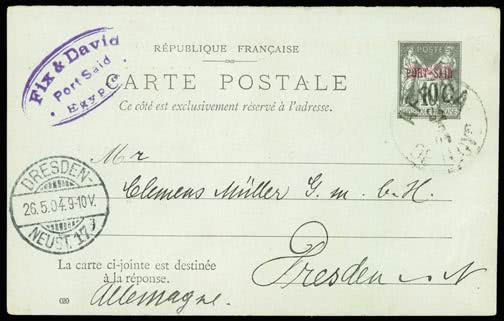 Fix & David
Port Said
Egypte
RÉPUBLIQUE FRANÇAISE
CARTE POSTALE
Ce côté est exclusivement réservé à l'adresse.
POSTE
PORT-SAID
10 C.
Mr
Clemens Müller G. m. b. H.
DRESDEN-
26.5.04.9-10V.
NEUST. 17
La carte ci-jointe est destinée
à la réponse.
Dresden - N
Allemagne.